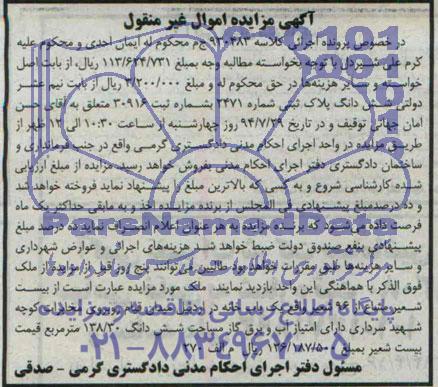 آگهی مزایده اموال غیر منقول
در خصوص پرونده اجرائی کلاسه ۹۲۰۳۸۳ ج م محکوم له ایمان احدی و محکوم علیه
کرم علی شیردل با توجه بخواسته مطالبه وجه بمبلغ ۱۱۳/۶۲۴/۷۳۱ ریال، از بابت اصل
خواسته و سایر هزینه‌ها در حق محکوم له و مبلغ ۴/۲۰۰/۰۰۰ ریال از بابت نیم عشر
دولتی شش دانگ پلاک ثبتی شماره ۲۴۷۱ بشماره ثبت ۳۰۹۱۶ متعلق به آقای حسن
امان جهانی توقیف و در تاریخ ۹۴/۷/۲۹ روز چهارشنبه از ساعت ۱۰:۳۰ الی ۱۲ ظهر از
طریق مزایده در واحد اجرای احکام مدنی دادگستری گرمی واقع در جنب فرمانداری و
ساختمان دادگستری دفتر اجرای احکام مدنی بفروش خواهد رسید. مزایده از مبلغ ارزیابی
شده کارشناسی شروع و به کسی که بالاترین مبلغ را پیشنهاد نماید فروخته خواهد شد
و ده درصد مبلغ پیشنهادی فی المجلس از برنده مزایده اخذ و به مابقی حداکثر یک ماه
فرصت داده می‌شود که برنده مزایده به هر عنوان اعلام انصراف نماید ده درصد مبلغ
پیشنهادی بنفع صندوق دولت ضبط خواهد شد هزینه‌های اجرائی و عوارض شهرداری
و سایر هزینه‌ها طبق مقررات خواهد بود طالبین می‌توانند پنج روز قبل از مزایده از ملک
فوق الذکر با هماهنگی این واحد بازدید نمایند. ملک مورد مزایده عبارت است از بیست
شعیر مشاع از ۹۶ شعیر واقع یک باب خانه در اردبیل میدان قائم روبروی مخابرات کوچه
شهید سرداری دارای امتیاز آب و برق گاز مساحت شش دانگ ۱۳۸/۳۰ مترمربع قیمت
بیست شعیر بمبلغ ۱۳۶/۱۸۷/۵۰۰ ریال م الف ۲۷
مسئول دفتر اجرای احکام مدنی دادگستری گرمی - صدقی
ParsNamadData
پایگاه اطلاع رسانی مناقصات و مزایدات
۰۲۱-۸۸۳۴۹۶۷۰-۵